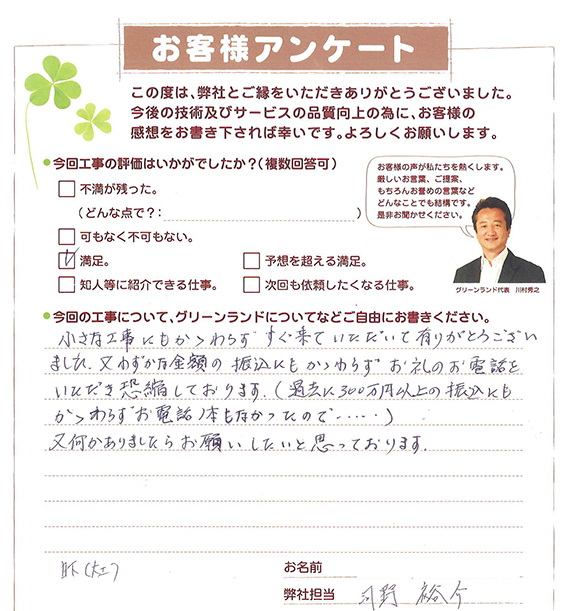 お客様アンケート
この度は、弊社とご縁をいただきありがとうございました。
今後の技術及びサービスの品質向上の為に、お客様の
感想をお書き下されば幸いです。よろしくお願いします。
●今回工事の評価はいかがでしたか?(複数回答可)
不満が残った。
(どんな点で?: )
可もなく不可もない。
満足。
予想を超える満足。
知人等に紹介できる仕事。
次回も依頼したくなる仕事。
お客様の声が私たちを熱くします。
厳しいお言葉、ご提案、
もちろんお誉めの言葉など
どんなことでも結構です。
是非お聞かせください。
グリーンランド代表 川村秀之
●今回の工事について、グリーンランドについてなどご自由にお書きください。
小さな工事にもかゝわらず すぐ来ていただいて有りがとうござい
ました. 又わずかな金額の振込にもかゝわらず お礼のお電話を
いただき恐縮しております.(過去に300万円以上の振込にも
かゝわらずお電話1本もなかったので‥‥‥)
又何かありましたらお願いしたいと思っております.
お名前
弊社担当